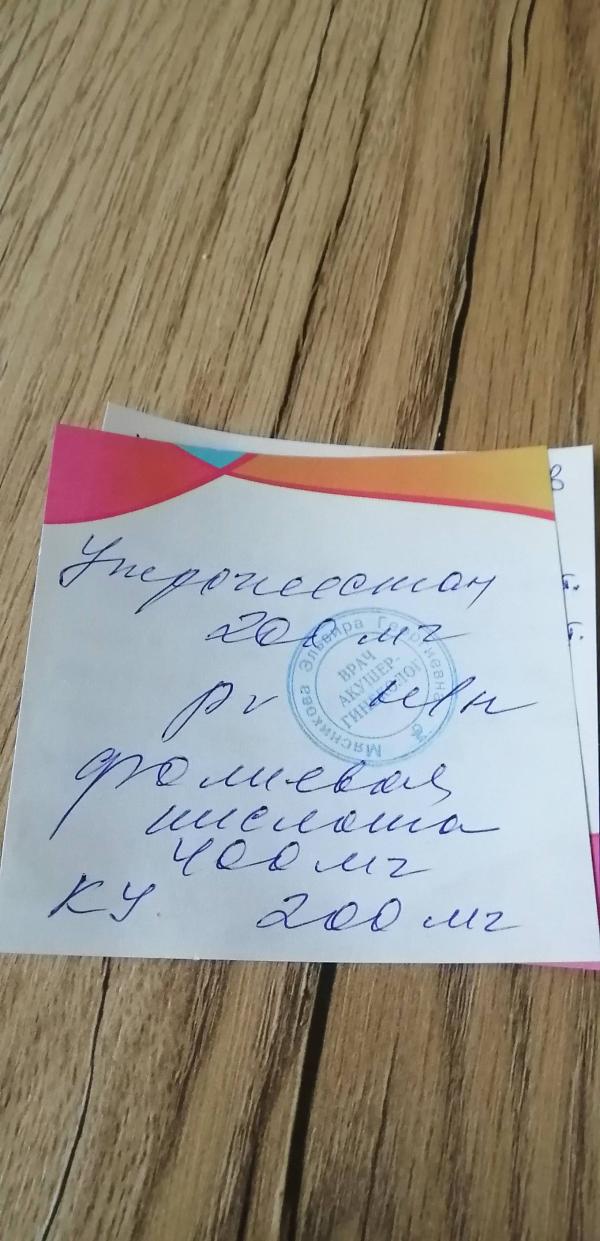 Утрожестан
200 мг
pv свн
фолиевая
кислота
400 мг
КУ 200 мг
Мясникова Эльвира Георгиевна
ВРАЧ
АКУШЕР-
ГИНЕКОЛОГ
в
т.
т.